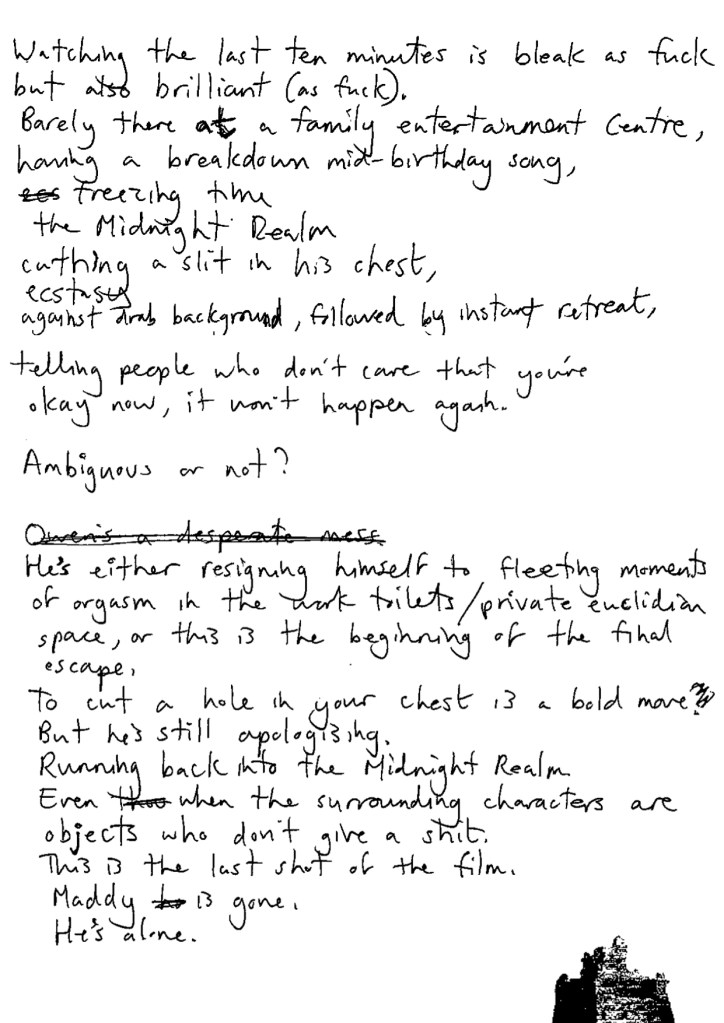 Watching the last ten minutes is bleak as fuck
but also brilliant (as fuck).
Barely there at a family entertainment centre,
having a breakdown mid-birthday song,
freezing time
the Midnight Realm
cutting a slit in his chest,
ecstasy
against drab background, followed by instant retreat,
telling people who don't care that you're
okay now, it won't happen again.
Ambiguous or not?
Owen's a desperate mess
He's either resigning himself to fleeting moments
of orgasm in the work toilets/private euclidian
space, or this is the beginning of the final
escape.
To cut a hole in your chest is a bold move?
But he's still apologising.
Running back into the Midnight Realm
Even when the surrounding characters are
objects who don't give a shit.
This is the last shot of the film.
Maddy is gone.
He's alone.